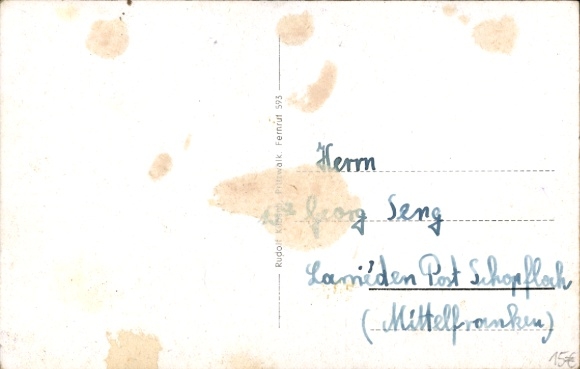 Rudolf Pritzwalk. Fernruf 595
Herrn
Georg Seng
Larrieden Post Schopfloch
(Mittelfranken)
15€